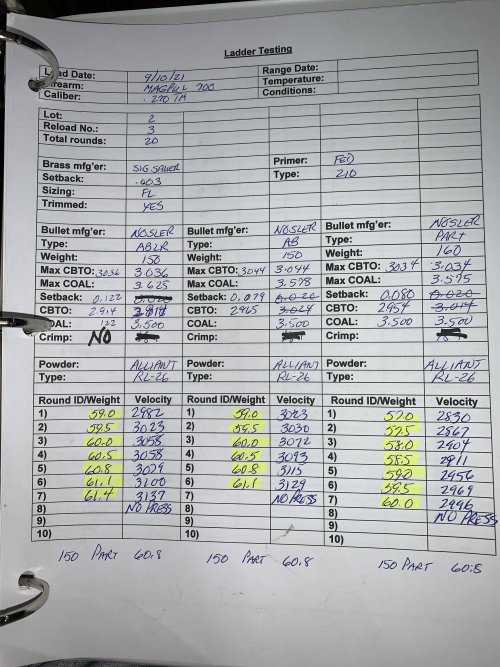 Ladder Testing
Load Date: 9/10/21 Range Date:
Firearm: MAGPUL 700 Temperature:
Caliber: .270 Conditions:
Lot: 2
Reload No.: 3
Total rounds: 20
Brass mfg'er: SIG SAUER Primer: FED
Setback: .603 Type: 210
Sizing: FL
Trimmed: YES
Bullet mfg'er: NOSLER Bullet mfg'er: NOSLER Bullet mfg'er: NOSLER
Type: ABLR Type: AB Type: PART
Weight: 150 Weight: 150 Weight: 160
Max CBTO: 3.036 3.036 Max CBTO: 3.044 3.044 Max CBTO: 3.034 3.034
Max COAL: 3.625 Max COAL: 3.578 Max COAL: 3.575
Setback: 0.122 Setback: 0.079 Setback: 0.080 0.020
CBTO: 2.914 CBTO: 2.965 3.024 CBTO: 2954 3.014
COAL: 3.500 COAL: 3.500 COAL: 3.500 3.500
Crimp: NO Crimp: Crimp:
Powder: ALLIANT Powder: ALLIANT Powder: ALLIANT
Type: RL-26 Type: RL-26 Type: RL-26
Round ID/Weight Velocity Round ID/Weight Velocity Round ID/Weight Velocity
1) 59.0 2982 1) 59.0 3023 1) 57.0 2830
2) 59.5 3023 2) 59.5 3030 2) 57.5 2867
3) 60.0 3058 3) 60.0 3072 3) 58.0 2904
4) 60.5 3058 4) 60.5 3093 4) 58.5 2911
5) 60.8 3079 5) 60.8 3115 5) 59.0 2956
6) 61.1 3100 6) 61.1 3129 6) 59.5 2969
7) 61.4 3137 7) NO PRESS 7) 60.0 2996
8) NO PRESS 8) 8) NO PRESS
9) 9) 9)
10) 10) 10)
150 PART 60.8 150 PART 60.8 150 PART 60.8